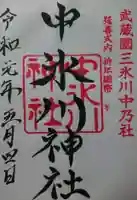 武蔵國三氷川中乃社
延喜式内
中氷川神社
令和元年五月四日